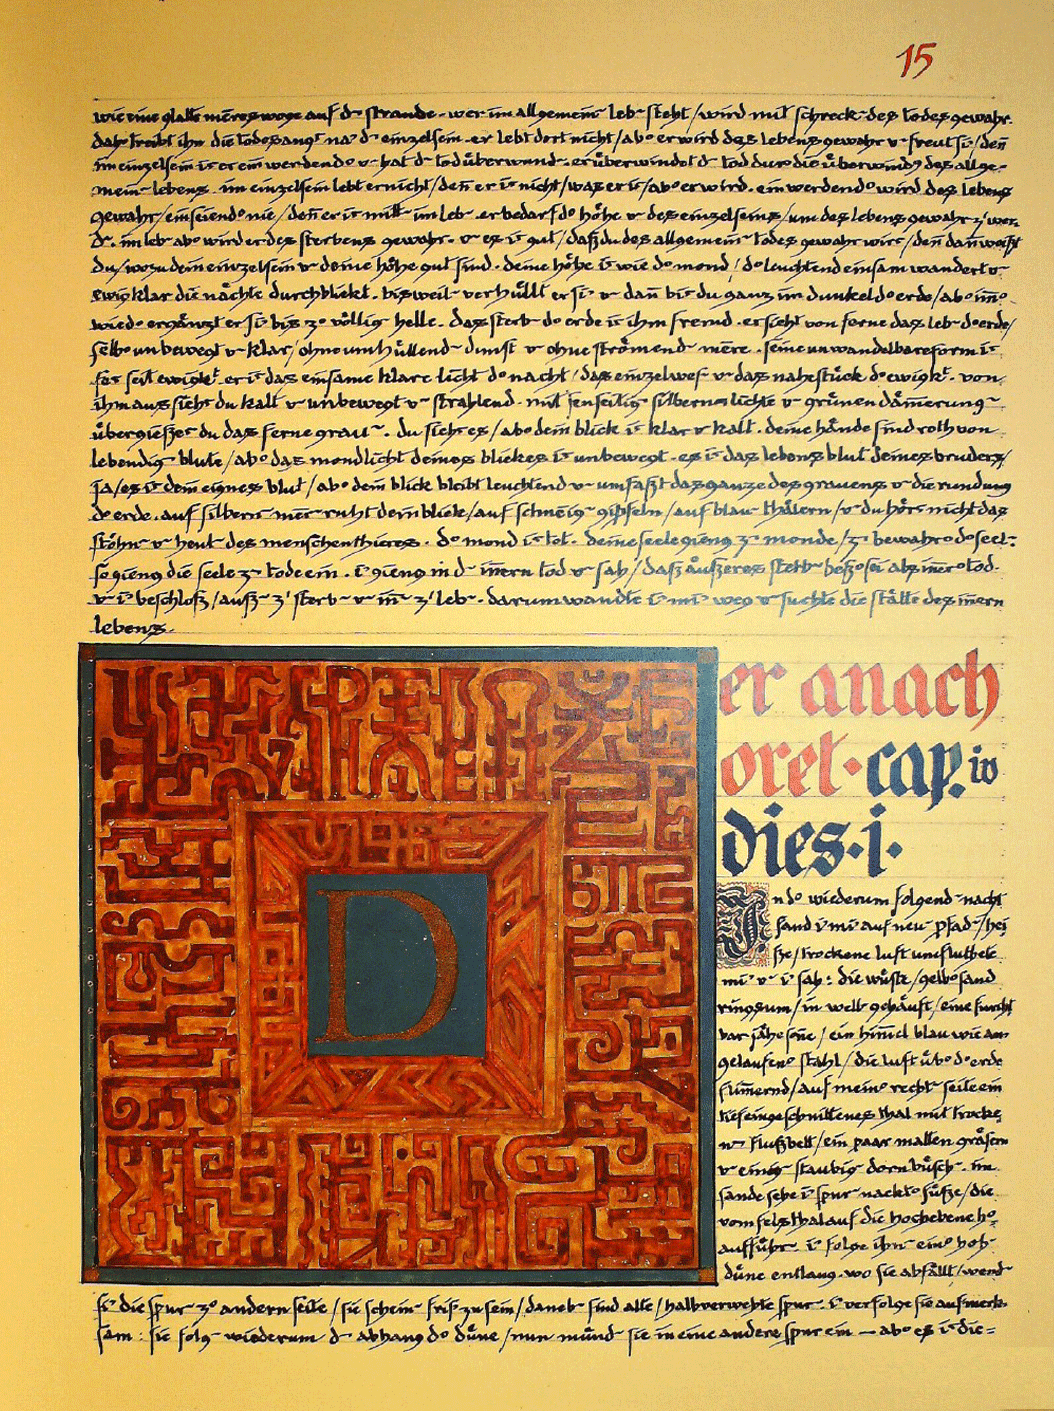 15
wie eine glatte meereswoge auf d strande. wer im allgemein leb steht / wird mit schreck des todes gewahr.
dah treibt ihn die todesangst na d einzelsein. er lebt dort nicht / abo er wird des lebens gewahr v freut si / den̄
im einzelsein i er ein werdendo v hat d tod überwund. er überwindet d tod durc die überwindg des allge-
mein lebens. im einzelsein lebt er nicht / den̄ er i nicht / was er i / abo er wird. ein werdendo wird des lebens
gewahr / ein seiendo nie / den̄ er i mitt im leb. er bedarf do höhe v des einzelseins / um des lebens gewahr z' wer
d. im leb abo wird er des sterbens gewahr. v es i gut / daß du des allgemein todes gewahr wirs / den̄ dan̄ weißt
du / wozu dein einzelsein v deine höhe gut sind. deine höhe i wie do mond / do leuchtend einsam wandert v
ewig klar die nächte durchblickt. bisweil verhüllt er si v dan̄ bis du ganz im dunkel do erde / abo im̄o
wiedo ergänzt er si bis zo völlig helle. das sterb do erde i ihm fremd. er sieht von ferne das leb do erde /
selbo unbewegt v klar / ohne umhüllend dunst v ohne strömend meere. seine unwandelbare form i
fes seit ewigkt. er i das einsame klare licht do nacht / das einzelwes v das nahe stück do ewigkt. von
ihm aus siehs du kalt v unbewegt v strahlend. mit jenseitig silberno lichte v grünen dämerung
übergießes du das ferne grau. du siehs es / abo dein blick i klar v kalt. deine hände sind roth von
lebendig blute / abo das mondlicht deines blickes i unbewegt. es i das lebensblut deines bruders /
ja / es i dein eignes blut / abo dein blick bleibt leuchtend v umfaßt das ganze des grauens v die rundung
do erde. auf silbern meer ruht dein blick / auf schneeig gipfeln / auf blau thälern / v du hörs nicht das
stöhn v heul des menschenthieres. do mond i tot. deine seele gieng z monde / z bewahro do seel:
so gieng die seele z tode ein. i gieng in d in̄ern tod v sah / daß äußeres sterb beßo sei als in̄ero tod.
v i beschloß / auß z' sterb v in̄ z' leb. darum wandte i mi weg v suchte die stätte des in̄ern
lebens.
D
er anach
oret. cap. iv
dies. i.
In do wiederum folgend nacht
fand i mi auf neu pfad / hei
ße / trockene luft umfluthete
mi v i sah: die wüste / gelbo sand
ringsum / in well gehäuft / eine furcht
bar jähe son̄e / ein him̄el blau wie an
gelaufeno stahl / die luft übo do erde
flim̄ernd / auf meino recht seite ein
tief eingeschnittenes thal mit trocke
n flußbett / ein paar matten gräsern
v einig staubig dornbüsch. im
sande sehe i spur nackto füße / die
vom felsthal auf die hochebene ho
aufführ. i folge ihn eino hoh
düne entlang. wo sie abfällt / wend
si die spur zo andern seite / sie schein frisc zu sein / daneb sind alte / halbverwehte spur. i verfolge sie aufmerk-
sam: sie folg wiederum d abhang do düne / nun münd sie in eine andere spur ein – abo es i die=